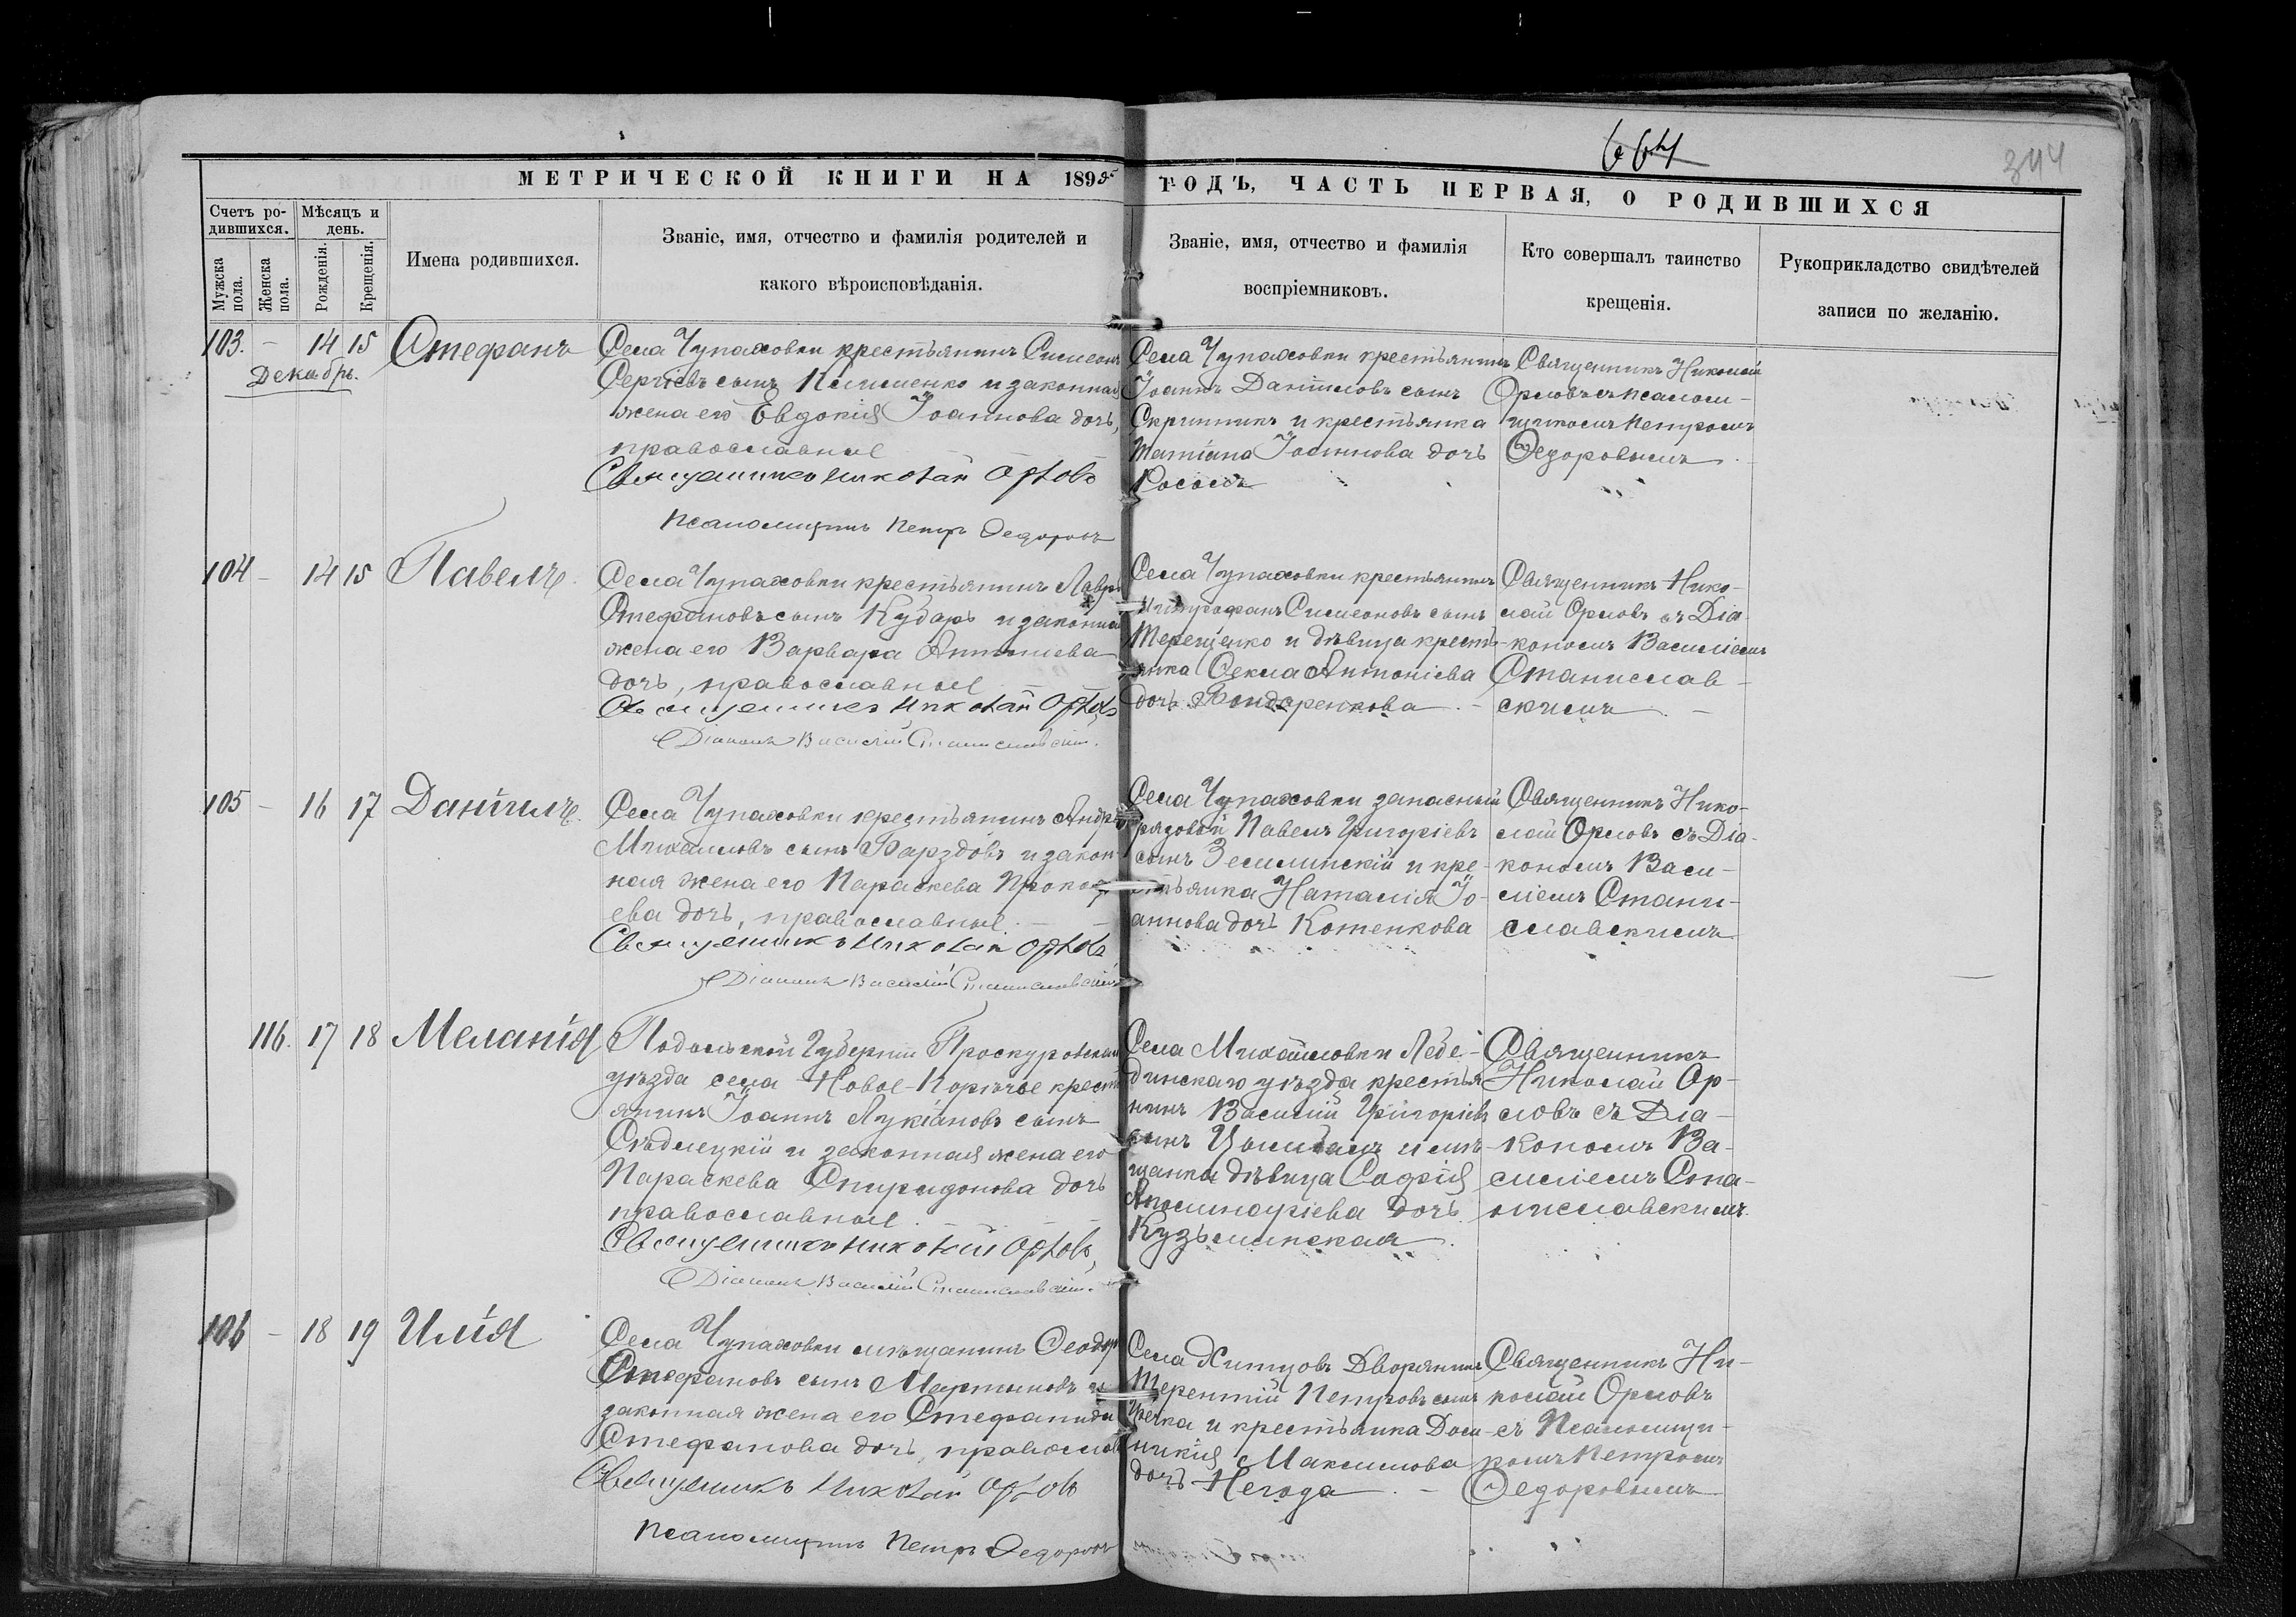 664
344
МЕТРИЧЕСКОЙ КНИГИ НА 1895 ГОДЪ, ЧАСТЬ ПЕРВАЯ, О РОДИВШИХСЯ
Счетъ ро-
дившихся.
Мужска
пола.
Женска
пола.
Мѣсяцъ и
день.
Рожденія.
Крещенія.
Имена родившихся.
Званіе, имя, отчество и фамилія родителей и
какого вѣроисповѣданія.
Званіе, имя, отчество и фамилія
воспріемниковъ.
Кто совершалъ таинство
крещенія.
Рукоприкладство свидѣтелей
записи по желанію.
103. – 14 15 Стефанъ
Декабрь.
Села Чупаховки крестьянинъ Симеонъ
Сергіевъ сынъ Клименко и законная
жена его Евдокія Іоаннова дочь,
православные
Священникъ Николай Орловъ
Псаломщикъ Петръ Федоровъ
Села Чупаховки крестьянинъ
Іоаннъ Даніиловъ сынъ
Скрипникъ и крестьянка
Татіана Іоаннова дочь
Священникъ Николай
Орловъ съ псалом-
щикомъ Петромъ
Федоровымъ
104 – 14 15 Павелъ
Села Чупаховки крестьянинъ Лавръ
Стефановъ сынъ Кубарь и законная
жена его Варвара Антоніева
дочь, православные
Священникъ Николай Орловъ
Діаконъ Василій Станиславскій.
Села Чупаховки крестьянинъ
Митрофанъ Симеоновъ сынъ
Терещенко и дѣвица кресть-
янка Фекла Антоніева
дочь Бондаренкова
Священникъ Нико-
лай Орловъ съ Діа-
кономъ Василіемъ
Станислав-
скимъ
105 – 16 17 Даніилъ
Села Чупаховки крестьянинъ Андрей
Михаиловъ сынъ и закон-
ная жена его Параскева Прокопі-
ева дочь, православные.
Священникъ Николай Орловъ
Діаконъ Василій Станиславскій
Села Чупаховки запасный
рядовой Павелъ Григоріевъ
сынъ Землинскій и кре-
стьянка Наталія Іо-
аннова дочь Котенкова
Священникъ Нико-
лай Орловъ съ Діа-
кономъ Васи-
ліемъ Стани-
славскимъ
116. 17 18 Меланія
Подольской Губерніи Проскуровскаго
уѣзда села Новое-Порѣчье кресть
янинъ Іоаннъ Лукіановъ сынъ
Сѣдлецкій и законная жена его
Параскева Спиридонова дочь
православные.
Священникъ Николай Орловъ,
Діаконъ Василій Станиславскій.
Села Михайловки Лебе-
динскаго уѣзда крестья
нинъ Василій Григоріевъ
сынъ Цымбалъ и мѣ-
щанка дѣвица Софія
Аполинаріева дочь
Кузьминская
Священникъ
Николай Ор-
ловъ съ Діа-
кономъ Ва-
силіемъ Ста-
ниславскимъ.
106 – 18 19 Илія
Села Чупаховки мѣщанинъ Феодоръ
Стефановъ сынъ Мартыновъ и
законная жена его Стефанида
Стефанова дочь, православ
Священникъ Николай Орловъ
Псаломщикъ Петръ Федоровъ
Села Хитцовъ Дворянинъ
Терентій Петровъ сынъ
и крестьянка Дом-
никія Максимова
дочь Негода
Священникъ Ни-
колай Орловъ
съ Псаломщи-
комъ Петромъ
Федоровымъ